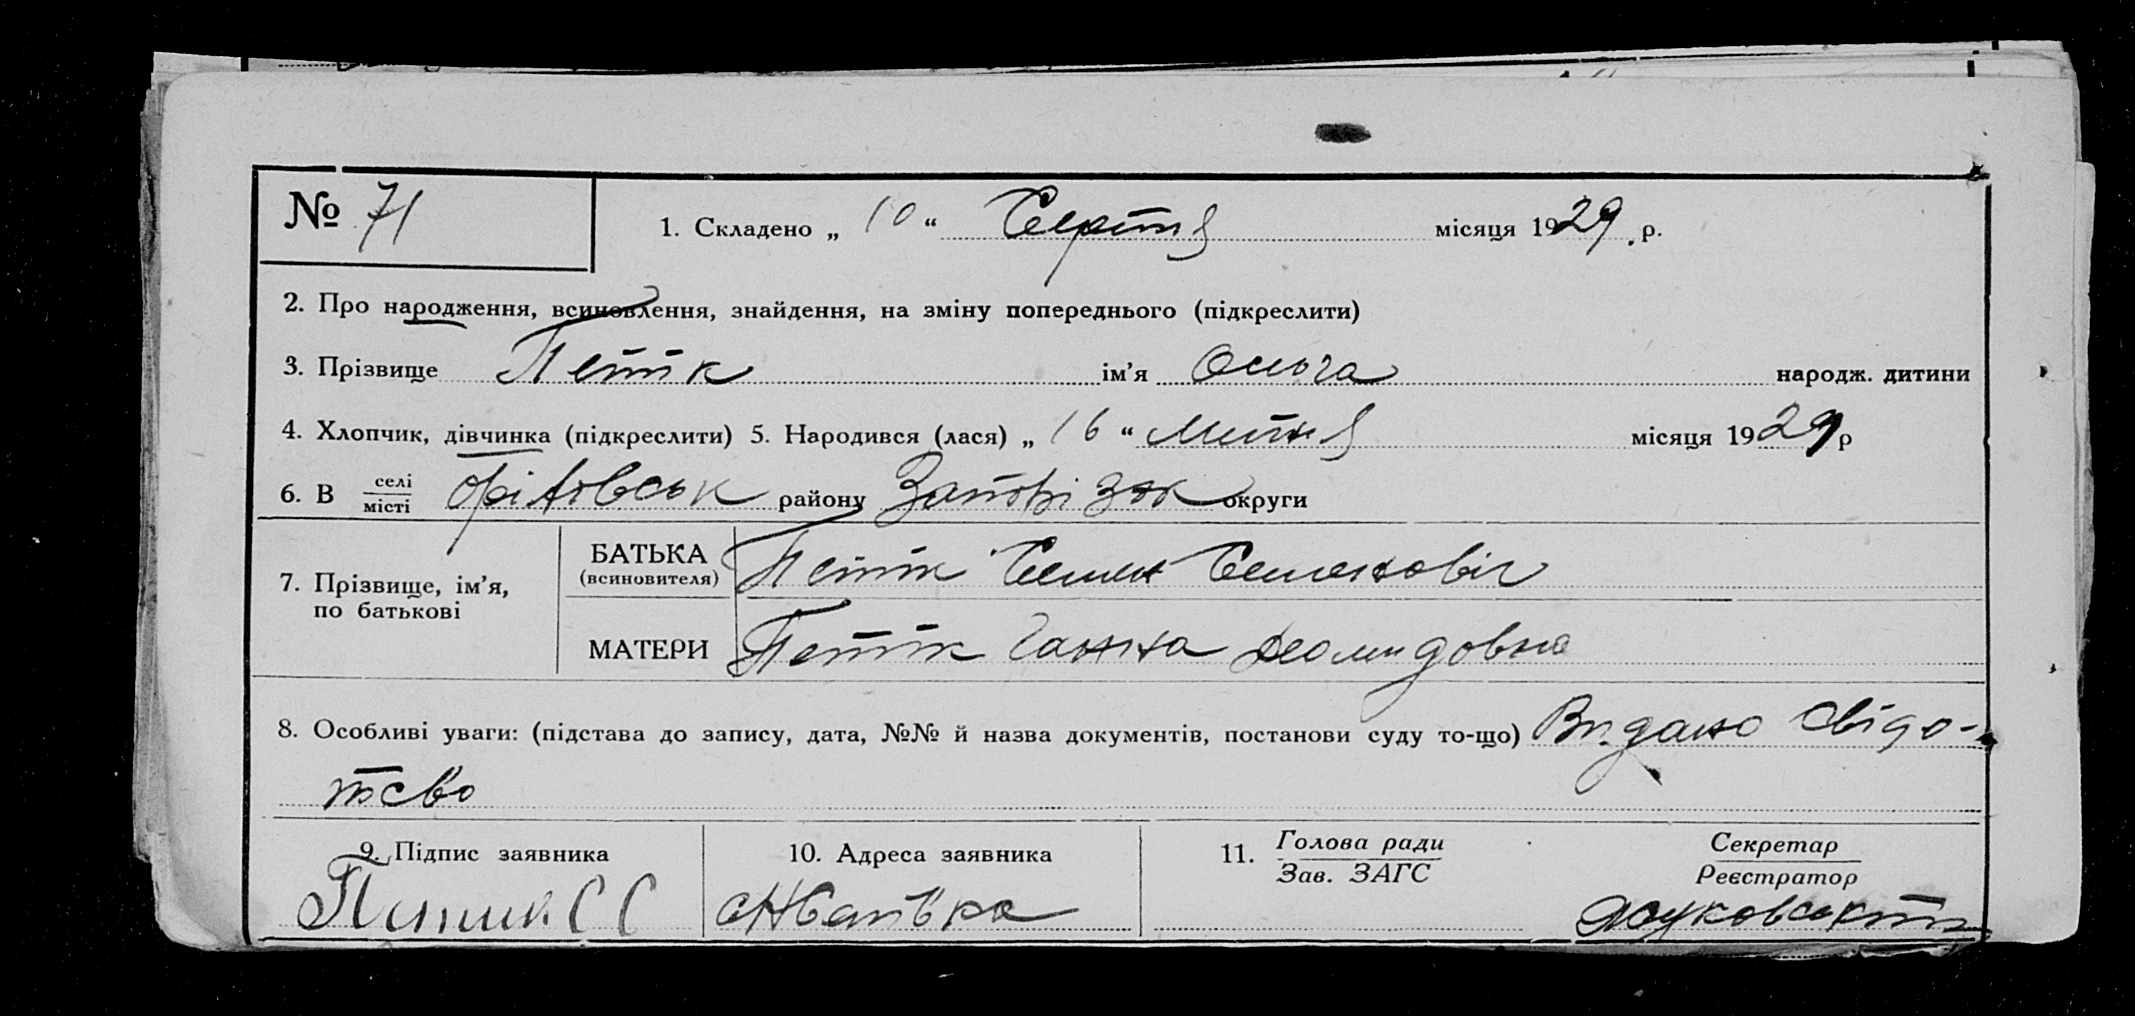 № 71
1. Складено „ 10 “ Серпня місяця 1929 р.
2. Про народження, всиновлення, знайдення, на зміну попереднього (підкреслити)
3. Прізвище Петік ім’я Ольга народж. дитини
4. Хлопчик, дівчинка (підкреслити) 5. Народився (лася) „ 16 “ Липня місяця 1929 р
6. В селі
місті Оріховськ району Запоріжж округи
7. Прізвище, ім’я,
по батькові
БАТЬКА
(всиновителя)
Петік Семен Семенович
МАТЕРИ
Петік Ганна
8. Особливі уваги: (підстава до запису, дата, №№ й назва документів, постанови суду то-що) Видано свідо-
тсво
9. Підпис заявника
10. Адреса заявника
11. Голова ради
Зав. ЗАГС
Секретар
Реєстратор
С С